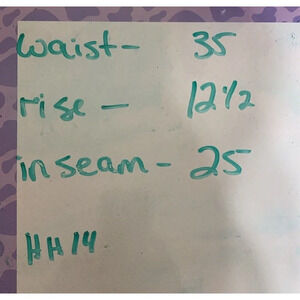 waist- 35
rise - 12½
inseam - 25
HH14